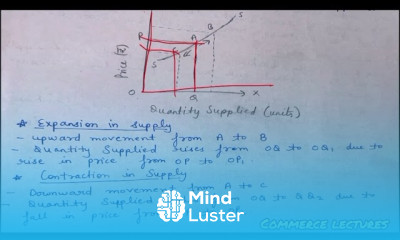 S
B
A
P
C
S
Price (₹)
O
Q
X
Quantity Supplied (units)
* Expansion in supply
- upward movement from A to B
- Quantity Supplied rises from OQ to OQ1 due to
rise in price from OP to OP1.
* Contraction in Supply
- Downward movement from A to C
- Quantity Supplied from OQ to OQ2 due to
fall in price from OP
Mind
Luster
COMMERCE LECTURES